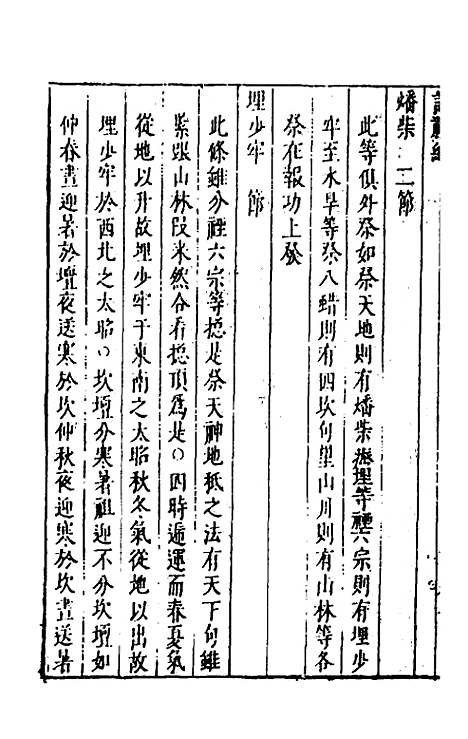 燔柴 二節
此等俱外祭如祭天地則有燔柴瘞埋等禋六宗則有埋少
牢至水旱等祭八蜡則有四坎句望山川則有山林等各
祭在報功上發
埋少牢 節
此條雖分禋六宗等總是祭天神地祇之法有天下句雖
緊跟山林段來然合看總頂為是○四時遞運而春夏氣
從地以升故埋少牢于東南之太昭秋冬氣從地以出故
埋少牢於西北之太昭○坎壇分寒暑祖迎不分坎壇如
仲春晝迎暑於壇夜送寒於坎仲秋夜迎寒於坎晝送暑